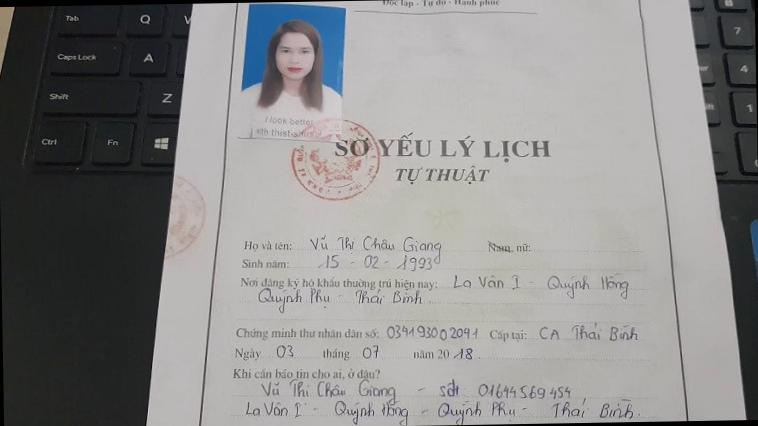 Tab
Q
Caps Lock
A
Shift
Z
Ctrl
Fn
7
4
1
Độc lập - Tự do - Hạnh phúc
I look better
SƠ YẾU LÝ LỊCH
TỰ THUẬT
Họ và tên: Vũ Thị Châu Giang Nam, nữ:
Sinh năm: 15 - 02 - 1993
Nơi đăng ký hộ khẩu thường trú hiện nay: La Vân I - Quỳnh Hồng
Quỳnh Phụ - Thái Bình
Chứng minh thư nhân dân số: 034193002091 Cấp tại: CA Thái Bình
Ngày 03 tháng 07 năm 2018.
Khi cần báo tin cho ai, ở đâu?
Vũ Thị Châu Giang - sđt 01644569454
La Vân I - Quỳnh Hồng - Quỳnh Phụ - Thái Bình.